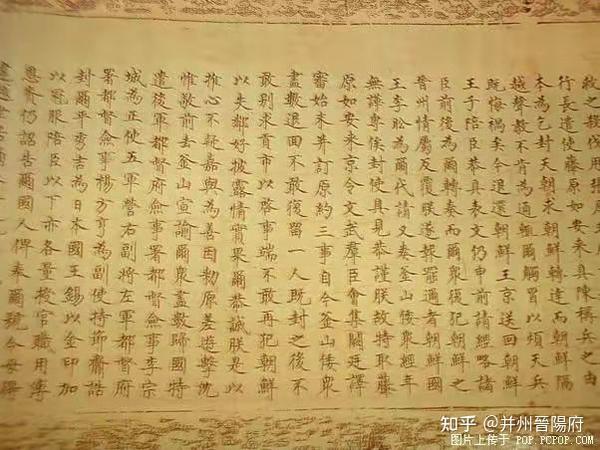 之援伐用張
行長遣使藤原如安來具陳稱兵之由
本為乞封天朝求朝鮮轉達而朝鮮隔
越聲教不肯為通輒爾觸冒以煩天兵
既悔禍矣今退還朝鮮王京送回朝鮮
王子陪臣恭具表文仍申前請經略諸
臣前後為爾轉奏而爾眾復犯朝鮮之
晉州情屬反覆朕遂報罷邇者朝鮮國
王李昖為爾代請又奏釜山倭眾經年
無譁專俟封使具見恭謹朕故特取藤
原如安來京令文武羣臣會集闕廷譯
審始末并訂原約三事自今釜山倭眾
盡數退回不敢復留一人既封之後不
敢別求貢市以啓事端不敢再犯朝鮮
以失鄰好披露情實果爾恭誠朕是以
推心不疑嘉與為善因勑原差遊擊沈
惟敬前去釜山宣諭爾眾盡數歸國特
遣後軍都督府僉事署都督僉事李宗
城為正使五軍營右副將左軍都督府
署都督僉事楊方亨為副使持節齎誥
封爾平秀吉為日本國王錫以金印加
以冠服陪臣以下亦各量授官職用溥
恩賚仍詔告爾國人俾奉爾號令毋得
違越世
知乎 @并州晉陽府
图片上传于 POP.PCPOP.COM